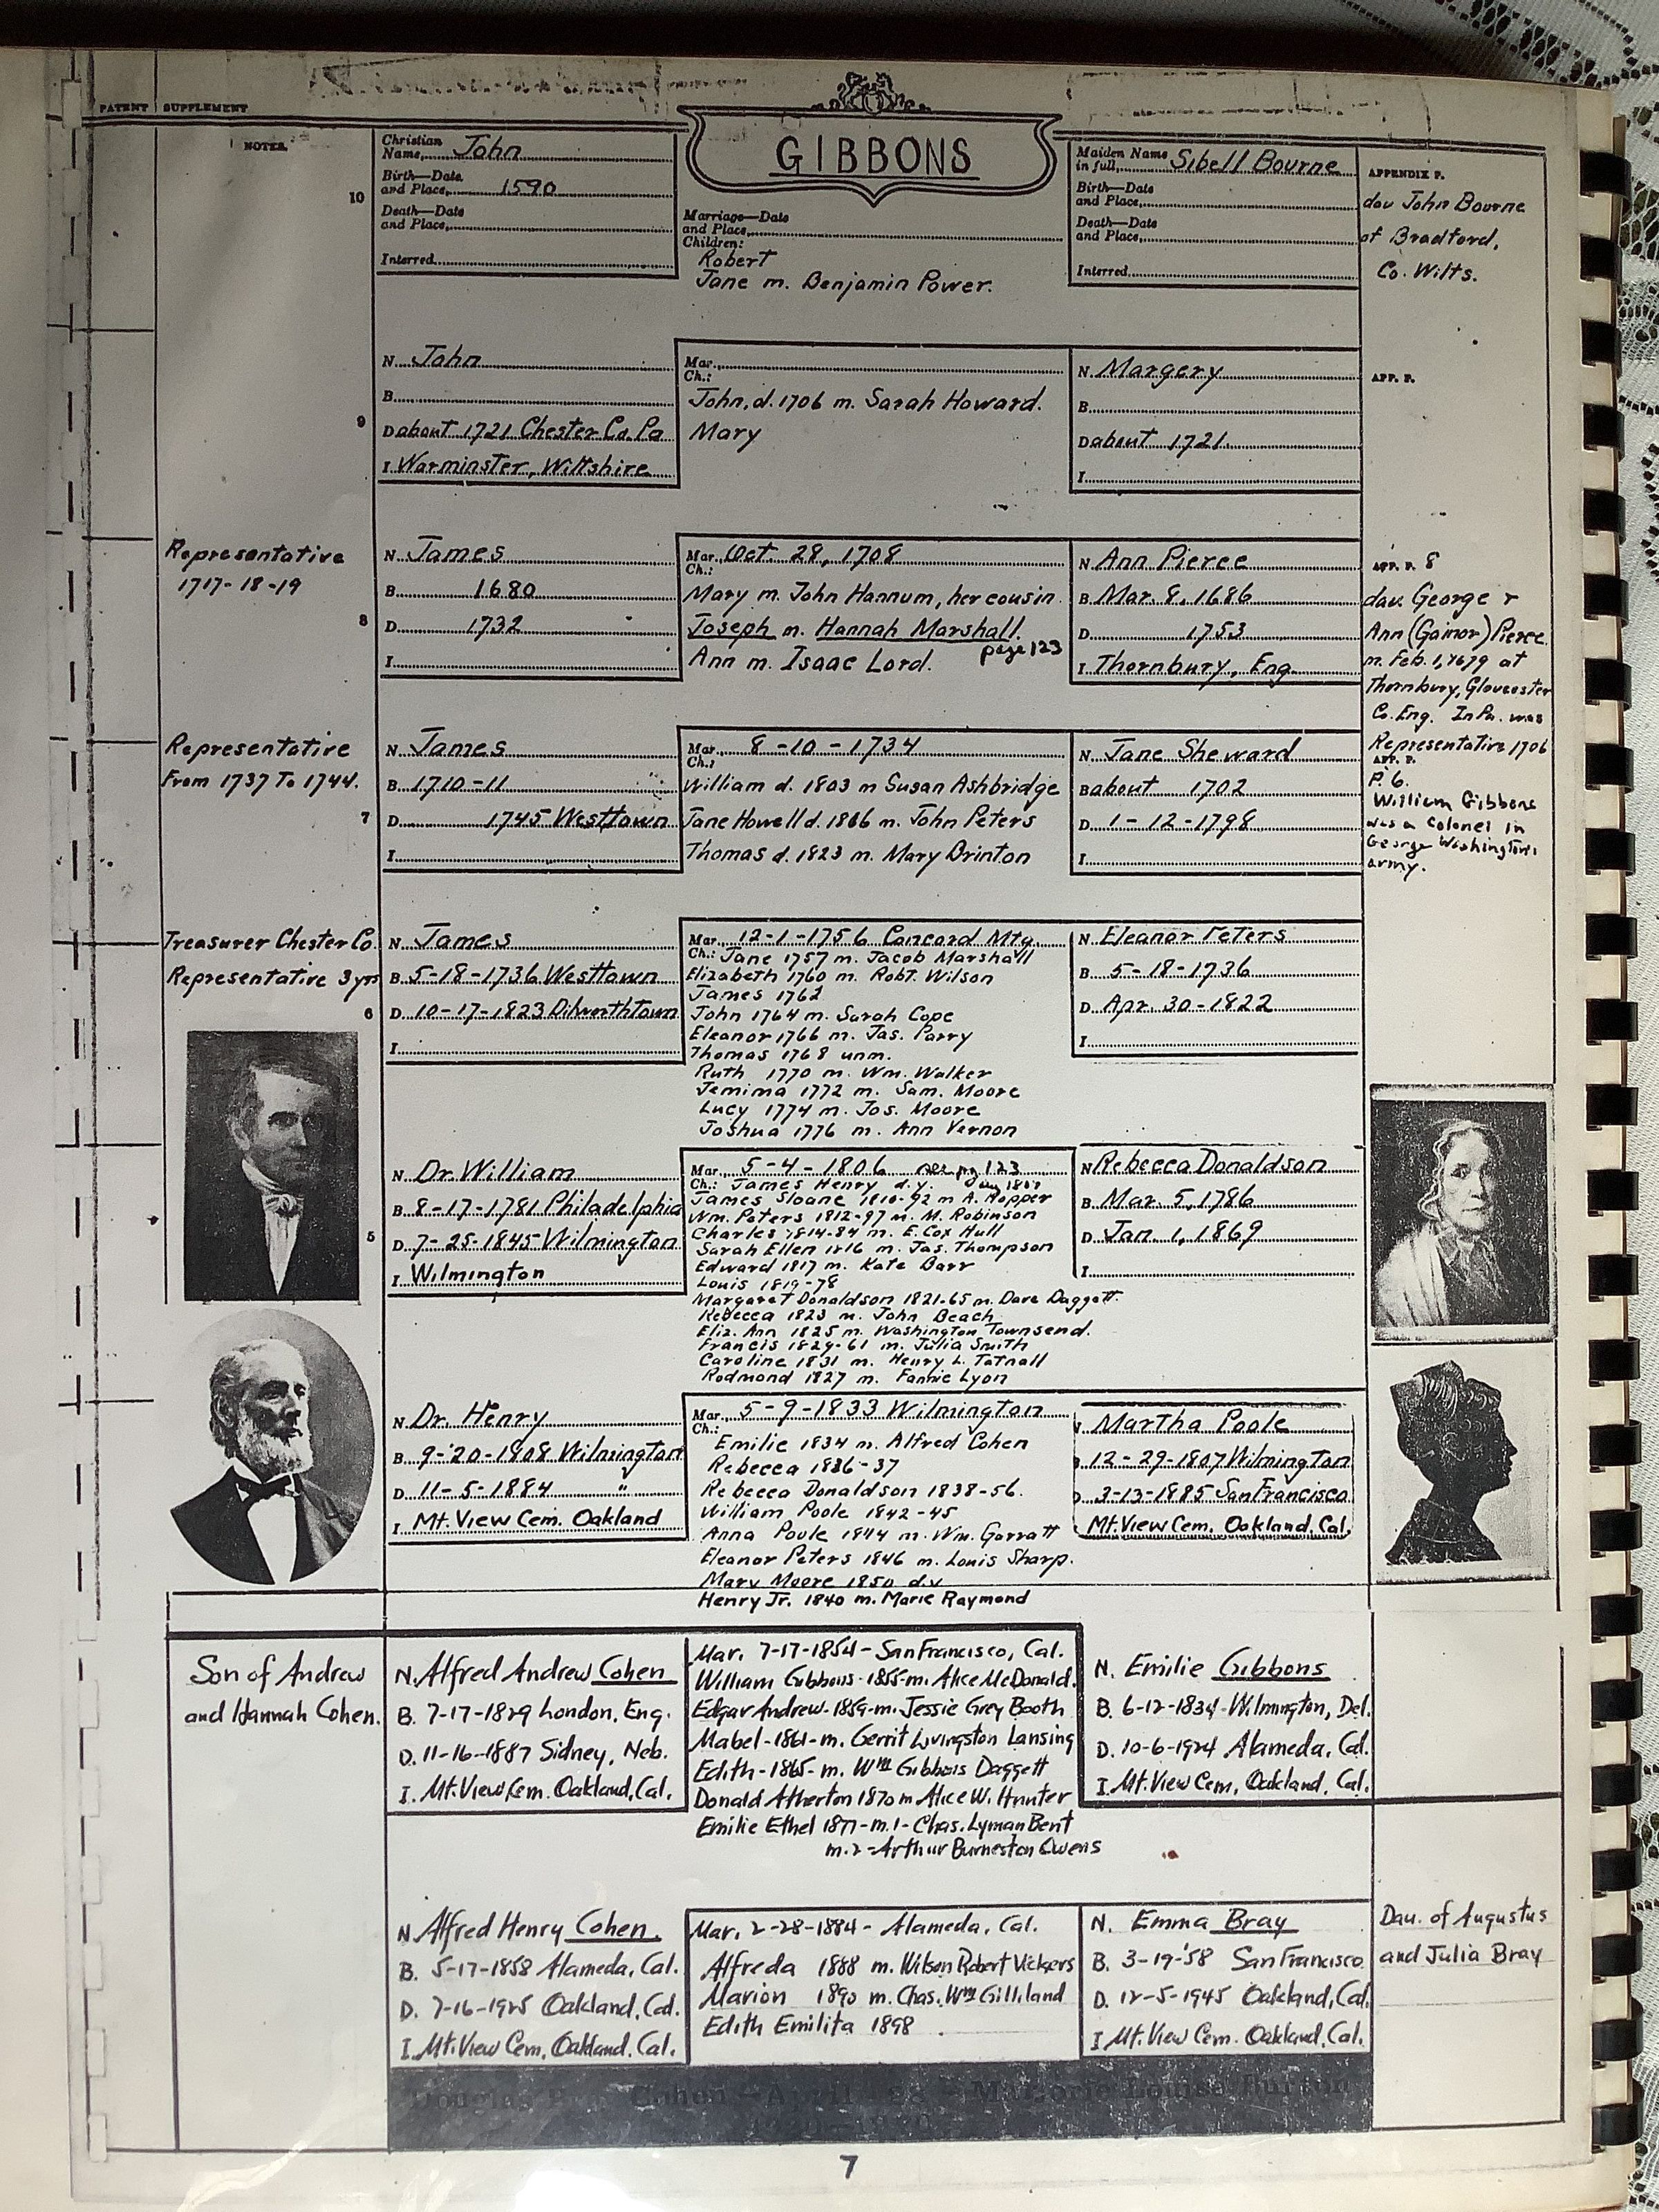 PATENT SUPPLEMENT
GIBBONS
NOTES.
10
Christian
Name, John
Birth—Date
and Place, 1590
Death—Date
and Place,
Interred
Marriage—Date
and Place,
Children:
Robert
Jane m. Benjamin Power.
Maiden Name
in full, Sibell Bourne
Birth—Date
and Place,
Death—Date
and Place,
Interred
APPENDIX P.
dau John Bourne
of Bradford,
Co. Wilts.
9
N. John
B.
D about 1721 Chester Co. Pa
I Warminster, Wiltshire
Mar.
Ch.:
John, d. 1706 m. Sarah Howard.
Mary
N. Margery
B.
D about 1721
I.
APP. P.
Representative
1717-18-19
8
N. James
B. 1680
D. 1732
I.
Mar. Oct. 28, 1708
Ch.:
Mary m. John Hannum, her cousin.
Joseph m. Hannah Marshall.
page 123
Ann m. Isaac Lord.
N Ann Pierce
B Mar. 8, 1686
D. 1753
I. Thornbury, Eng.
APP. P. 8
dau. George &
Ann (Gainor) Pierce
m. Feb. 1, 1679 at
Thornbury, Gloucester
Co. Eng. In Pa. was
Representative 1706
Representative
From 1737 To 1744.
7
N. James
B. 1710-11
D. 1745 Westtown
I.
Mar. 8-10-1734
Ch.:
William d. 1803 m Susan Ashbridge
Jane Howell d. 1806 m. John Peters
Thomas d. 1823 m. Mary Brinton
N. Jane Sheward
B about 1702
D. 1-12-1798
I.
APP. P.
P. 6.
William Gibbons
was a Colonel in
George Washington's
army.
Treasurer Chester Co.
Representative 3 yrs
6
N. James
B. 5-18-1736 Westtown
D. 10-17-1823 Dilworthtown
I.
Mar. 12-1-1756 Concord Mtg.
Ch.: Jane 1757 m. Jacob Marshall
Elizabeth 1760 m. Robt. Wilson
James 1762
John 1764 m. Sarah Cope
Eleanor 1766 m. Jas. Parry
Thomas 1768 unm.
Ruth 1770 m. Wm. Walker
Jemima 1772 m. Sam. Moore
Lucy 1774 m. Jos. Moore
Joshua 1776 m. Ann Vernon
N. Eleanor Peters
B. 5-18-1736
D. Apr. 30-1822
I.
5
N. Dr. William
B 8-17-1781 Philadelphia
D. 7-25-1845 Wilmington
I. Wilmington
Mar. 5-4-1806 see pg 123
Ch.: James Henry d.y.
James Sloane 1810-92 m A. Hopper
Wm. Peters 1812-97 m. M. Robinson
Charles 1814-84 m. E. Cox Hull
Sarah Ellen 1816 m. Jas. Thompson
Edward 1817 m. Kate Barr
Louis 1819-78
Margaret Donaldson 1821-65 m. Dave Daggett
Rebecca 1823 m. John Beach
Eliz. Ann 1825 m. Washington Townsend.
Francis 1829-61 m. Julia Smith
Caroline 1831 m. Henry L. Tatnall
Rodmond 1827 m. Fannie Lyon
N Rebecca Donaldson
B. Mar. 5, 1786
D. Jan. 1, 1869
I.
N. Dr. Henry
B. 9-20-1808 Wilmington
D. 11-5-1884 "
I. Mt. View Cem. Oakland
Mar. 5-9-1833 Wilmington
Ch.:
Emilie 1834 m. Alfred Cohen
Rebecca 1836-37
Rebecca Donaldson 1838-56.
William Poole 1842-45
Anna Poole 1844 m. Wm. Garratt
Eleanor Peters 1846 m. Louis Sharp.
Mary Moore 1850 d.y
Henry Jr. 1840 m. Marie Raymond
Martha Poole
12-29-1807 Wilmington
3-13-1885 San Francisco
Mt. View Cem. Oakland, Cal.
Son of Andrew
and Hannah Cohen.
N. Alfred Andrew Cohen
B. 7-17-1829 London, Eng.
D. 11-16-1887 Sidney, Neb.
I. Mt. View Cem. Oakland, Cal.
Mar. 7-17-1854-San Francisco, Cal.
William Gibbons-1855-m. Alice McDonald.
Edgar Andrew-1859-m. Jessie Grey Booth
Mabel-1861-m. Gerrit Livingston Lansing
Edith-1865-m. Wm Gibbons Daggett
Donald Atherton 1870 m Alice W. Hunter
Emilie Ethel 1877-m.1-Chas. Lyman Bent
m.2-Arthur Burneston Owens
N. Emilie Gibbons
B. 6-12-1834-Wilmington, Del.
D. 10-6-1924 Alameda, Cal.
I. Mt. View Cem, Oakland, Cal.
N. Alfred Henry Cohen.
B. 5-17-1858 Alameda, Cal.
D. 7-16-1925 Oakland, Cal.
I. Mt. View Cem, Oakland, Cal.
Mar. 2-28-1884-Alameda, Cal.
Alfreda 1888 m. Wilson Robert Vickers
Marion 1890 m. Chas. Wm Gilliland
Edith Emilita 1898
N. Emma Bray
B. 3-19-'58 San Francisco
D. 12-5-1945 Oakland, Cal.
I Mt. View Cem. Oakland, Cal.
Dau. of Augustus
and Julia Bray
Cohen - April Marjorie Louise Burton
7